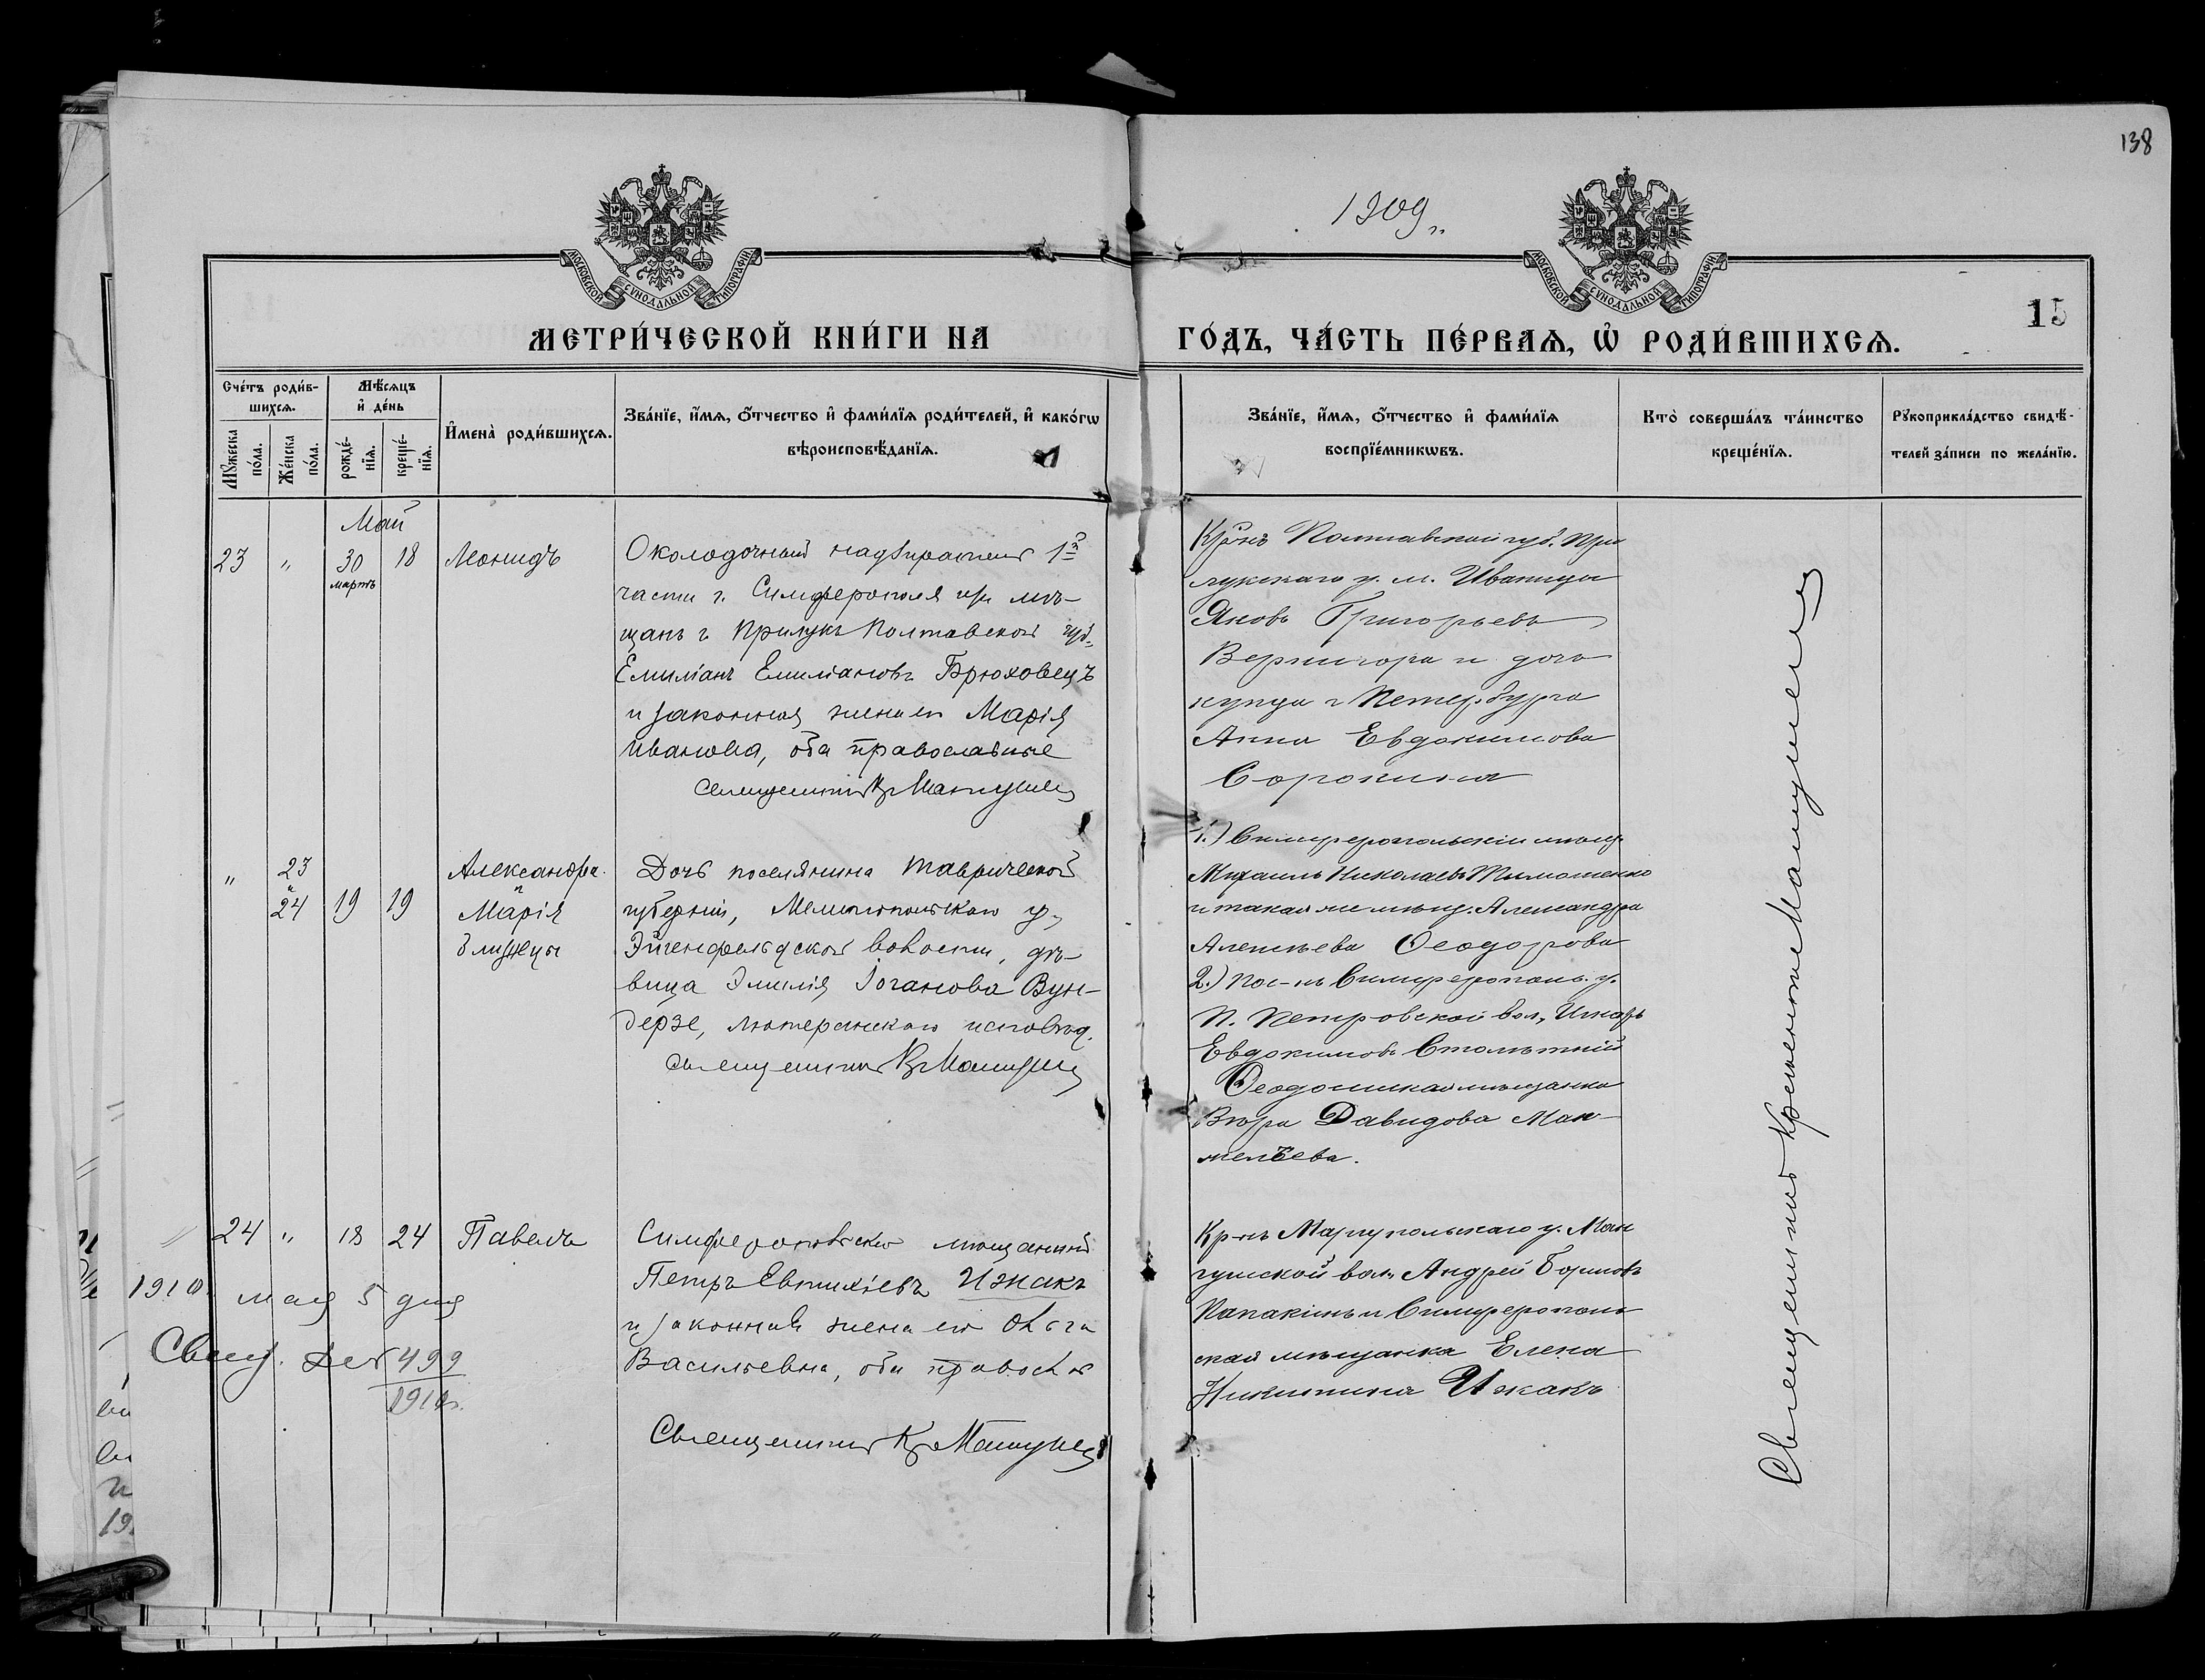 138
1909 г.
МОСКОВСКОЙ СѴНОДАЛЬНОЙ ТИПОГРАФІИ
МОСКОВСКОЙ СѴНОДАЛЬНОЙ ТИПОГРАФІИ
15
МЕТРИ́ЧЕСКОЙ КНИ́ГИ НА ГО́ДЪ, ЧА́СТЬ ПЕ́РВАѦ, Ѡ҆ РОДИ́ВШИХСѦ.
Сче́тъ роди́в-
шихсѧ.
Мꙋ́жеска по́ла.
Же́нска по́ла.
Мѣ́сѧцъ
и҆ де́нь
рожде́-
нїѧ.
креще́-
нїѧ.
И҆мена̀ роди́вшихсѧ.
Зва́нїе, и҆́мѧ, ѻ҆́тчество и҆ фами́лїѧ роди́телей, и҆ како́гѡ
вѣроисповѣ́данїѧ.
Зва́нїе, и҆́мѧ, ѻ҆́тчество и҆ фами́лїѧ
воспрїе́мникѡвъ.
Кто̀ соверша́лъ та́инство
креще́нїѧ.
Рꙋкоприкла́дство свидѣ́-
телей за́писи по жела́нїю.
Май
23 " 30 18 Леонидъ
мартъ
Околодочный надзиратель 1й
части г. Симферополя изъ мѣ-
щанъ г. Прилукъ Полтавской губ.
Емиліанъ Емиліановъ Брюховецъ
и законная жена его Марія
Иванова, оба православные
Священникъ Кр Машуше
Кр-нъ Полтавской губ. При
лукскаго у. м. Иваницы
Яковъ Григорьевъ
Вернигора и дочь
купца г Петербурга
Анна Евдокимова
Сорокина
" 23 Александра
и и
24 19 19 Марія
близнецы
Дочь поселянина Таврической
губерніи, Мелитопольскаго у.,
Эйгенфельдской волости, дѣ-
вица Эмилія Іоганова Вун-
дерзе, лютеранскаго исповѣд.
Священникъ Кр Машуше
1.) Симферопольскій мѣщ.
Михаилъ Николаевъ Тимошенко
и такая же мѣщ. Александра
Алексѣева Ѳеодорова
2.) Пос-нъ Симферополь. у.
П. Петровской вол.,
Евдокимовъ Столѣтній
Ѳеодосійская мѣщанка
Вѣра Давидова Ман-
24 " 18 24 Павелъ
Симферопольскій мѣщанинъ
Петръ Евтихіевъ Ижакъ
и законная жена его Ольга
Васильевна, оба правосл.
Священникъ Кр Машуше
Кр-нъ Маріупольскаго у. Ман
гушской вол. Андрей Борисовъ
Папакинъ и Симферополь
ская мѣщанка Елена
Никитина Ижакъ
1910 мая 5 дня
Свид. 499
1910г.
Священникъ Крискентъ Машуше